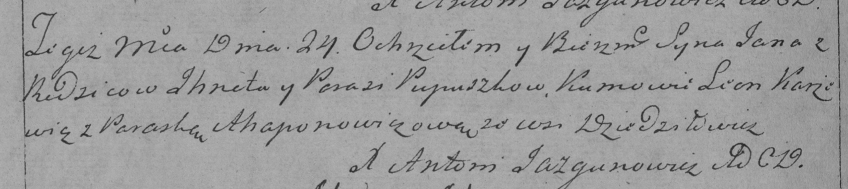 X Antoni Jazgunowicz AD CD.
Tegiż Mca Dnia 24. Ochrzciłem y Bierzm. Syna Jana z
Rodziców Ihnata y Parasi Pupuszkow, Kumowie Leon Karże
wicz z Paraską Ahaponowiczową ze wsi Dziedziłowicz
X Antoni Jazgunowicz AD CD.